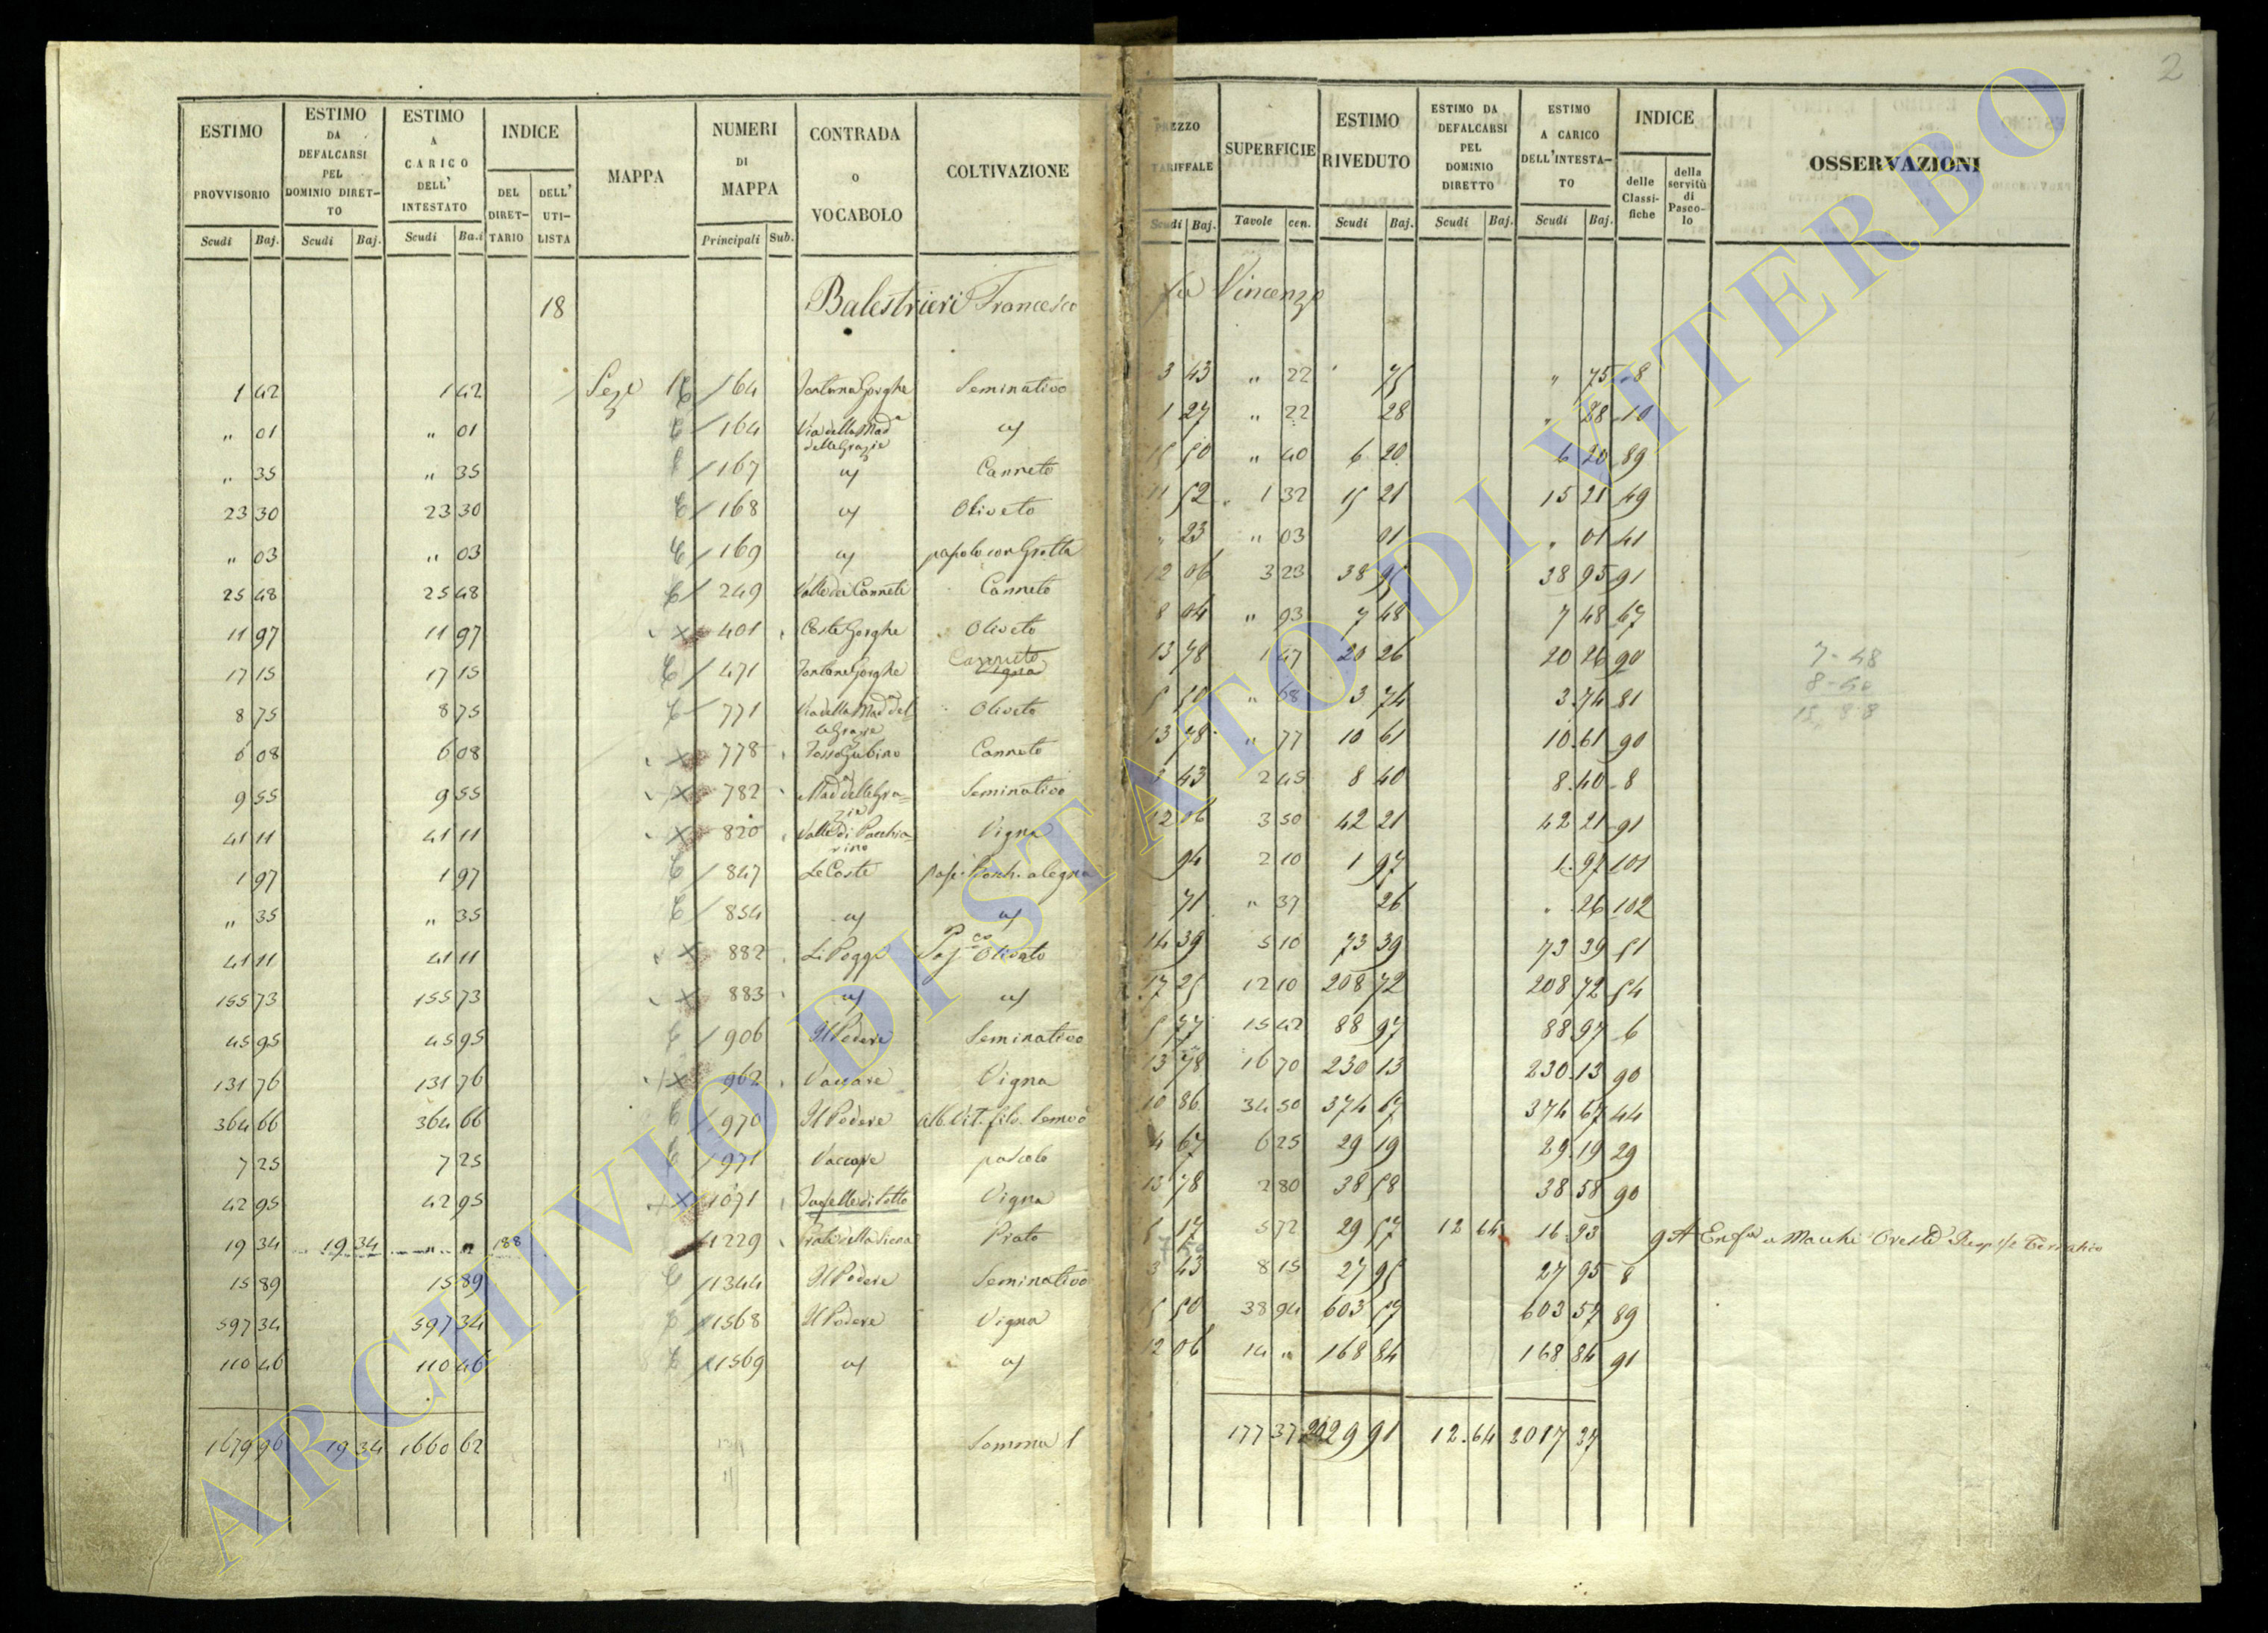 2
ESTIMO PROVVISORIO
ESTIMO DA DEFALCARSI PEL DOMINIO DIRETTO
ESTIMO A CARICO DELL' INTESTATO
INDICE
DEL DIRETTARIO
DELL' UTILISTA
MAPPA
NUMERI DI MAPPA
CONTRADA o VOCABOLO
COLTIVAZIONE
PREZZO TARIFFALE
SUPERFICIE
ESTIMO RIVEDUTO
ESTIMO DA DEFALCARSI PEL DOMINIO DIRETTO
ESTIMO A CARICO DELL'INTESTATO
INDICE
delle Classifiche
della servitù di Pascolo
OSSERVAZIONI
Scudi Baj. Scudi Baj. Scudi Ba.i Principali Sub. Scudi Baj. Tavole cen. Scudi Baj. Scudi Baj. Scudi Baj.
18 Balestrieri Francesco fu Vincenzo
1 42 1 42 Seze 164 Fontana Gorghe Seminativo 3 43 " 22 75 " 75 8
" 01 " 01 164 Via della Mad.a delle Grazie 1 27 " 22 28 " 28 10
" 35 " 35 167 Canneto 15 50 " 40 6 20 6 20 89
23 30 23 30 168 Oliveto 11 52 1 32 15 21 15 21 49
" 03 " 03 169 pascolo con Grotta " 23 " 03 01 " 01 41
25 48 25 48 249 Valle dei Canneti Canneto 12 06 3 23 38 95 38 95 91
11 97 11 97 401 Coste Gorghe Oliveto 8 04 " 93 7 48 7 48 67
17 15 17 15 471 Fontana Gorghe Canneto Vigna 13 78 1 47 20 26 20 26 90
8 75 8 75 771 Via della Mad.a delle Grazie Oliveto 5 50 " 68 3 74 3 74 81
6 08 6 08 778 Fosso Gubino Canneto 13 78 " 77 10 61 10 61 90
9 55 9 55 782 Mad.a delle Grazie Seminativo 3 43 2 45 8 40 8 40 8
41 11 41 11 820 Valle di Pacchiarino Vigna 12 06 3 50 42 21 42 21 91
1 97 1 97 847 Le Coste 94 2 10 1 97 1 97 101
" 35 " 35 854 71 " 37 26 " 26 102
41 11 41 11 882 Li Poggi Olivato 14 39 5 10 73 39 73 39 51
155 73 155 73 883 17 25 12 10 208 72 208 72 54
45 95 45 95 906 Il Podere Seminativo 5 77 15 42 88 97 88 97 6
131 76 131 76 962 Vaccare Vigna 13 78 16 70 230 13 230 13 90
364 66 364 66 970 Il Podere Alb. Vit. filo. Semvo 10 86 34 50 374 67 374 67 44
7 25 7 25 971 Vaccare pascolo 4 67 6 25 29 19 29 19 29
42 95 42 95 1071 Vigna 13 78 2 80 38 58 38 58 90
19 34 19 34 " " 188 1229 Prato 5 17 5 72 29 57 12 64 16 93
15 89 15 89 1344 Il Podere Seminativo 3 43 8 15 27 95 27 95 8
597 34 597 34 1568 Il Podere Vigna 15 50 38 94 603 57 603 57 89
110 46 110 46 1569 12 06 14 " 168 84 168 84 91
1679 96 19 34 1660 62 Somma 177 37 2029 91 12.64 2017 27
7-48
ARCHIVIO DI STATO DI VITERBO